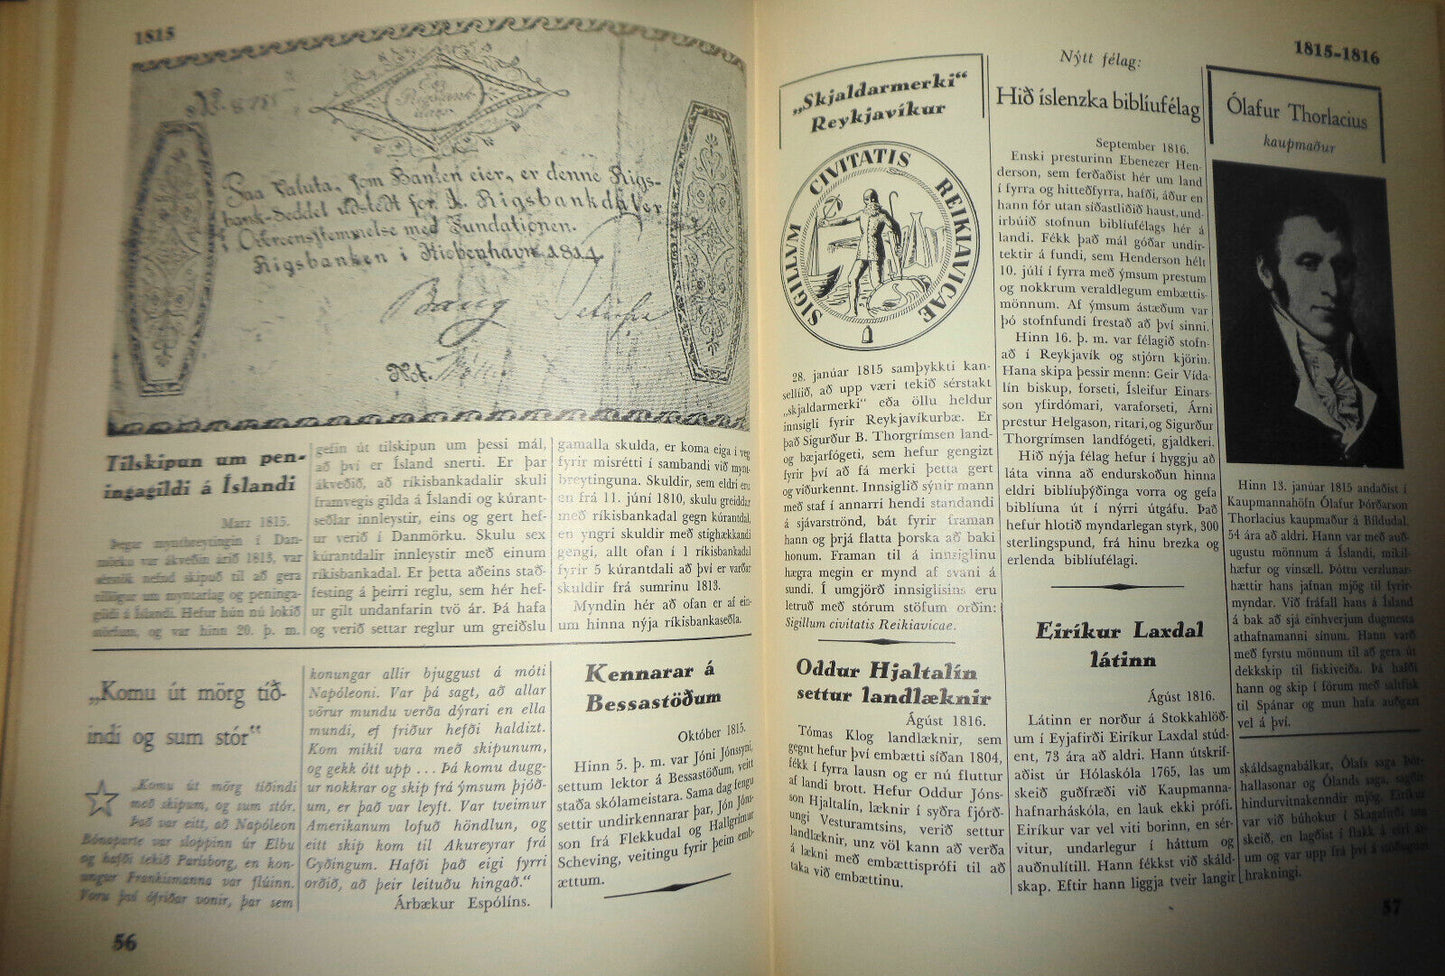 1815
No. 8785
Een
Rigsbank-
daler
Paa Valuta, som Banken eier, er denne Rigs-
bank-Seddel udstedt for 1. Rigsbankdaler
i Overeensstemmelse med Fundationen.
Rigsbanken i Kiobenhavn 1814.
Bang
Not.
Tilskipun um pen-
ingagildi á Íslandi
Marz 1815.
Þegar myntbreytingin í Dan-
mörku var ákveðin árið 1813, var
sérstök nefnd skipuð til að gera
tillögur um myntarlag og peninga-
gildi á Íslandi. Hefur hún nú lokið
störfum, og var hinn 20. þ. m.
gefin út tilskipun um þessi mál,
að því er Ísland snerti. Er þar
ákveðið, að ríkisbankadalir skuli
framvegis gilda á Íslandi og kúrant-
seðlar innleystir, eins og gert hef-
ur verið í Danmörku. Skulu sex
kúrantdalir innleystir með einum
ríkisbankadal. Er þetta aðeins stað-
festing á þeirri reglu, sem hér hef-
ur gilt undanfarin tvö ár. Þá hafa
og verið settar reglur um greiðslu
gamalla skulda, er koma eiga í veg
fyrir misrétti í sambandi við mynt-
breytinguna. Skuldir, sem eldri eru
en frá 11. júní 1810, skulu greiddar
með ríkisbankadal gegn kúrantdal,
en yngri skuldir með stighækkandi
gengi, allt ofan í 1 ríkisbankadal
fyrir 5 kúrantdali að því er varðar
skuldir frá sumrinu 1813.
Myndin hér að ofan er af ein-
um hinna nýja ríkisbankaseðla.
„Komu út mörg tíð-
indi og sum stór“
„Komu út mörg tíðindi
með skipum, og sum stór.
Það var eitt, að Napóleon
Bónaparte var sloppinn úr Elbu
og hafði tekið Parísborg, en kon-
ungur Frankismanna var flúinn.
Voru því ófriðar vonir, þar sem
konungar allir bjuggust á móti
Napóleoni. Var þá sagt, að allar
vörur mundu verða dýrari en ella
mundi, ef friður hefði haldizt.
Kom mikil vara með skipunum,
og gekk ótt upp ... Þá komu dugg-
ur nokkrar og skip frá ýmsum þjóð-
um, er það var leyft. Var tveimur
Amerikanum lofuð höndlun, og
eitt skip kom til Akureyrar frá
Gyðingum. Hafði það eigi fyrri
orðið, að þeir leituðu hingað.“
Árbækur Espólíns.
Kennarar á
Bessastöðum
Október 1815.
Hinn 5. þ. m. var Jóni Jónssyni,
settum lektor á Bessastöðum, veitt
staða skólameistara. Sama dag fengu
settir undirkennarar þar, Jón Jóns-
son frá Flekkudal og Hallgrímur
Scheving, veitingu fyrir þeim emb-
ættum.
56
1815-1816
„Skjaldarmerki“
Reykjavíkur
SIGILLVM CIVITATIS REIKIAVICAE
28. janúar 1815 samþykkti kan-
sellíið, að upp væri tekið sérstakt
„skjaldarmerki“ eða öllu heldur
innsigli fyrir Reykjavíkurbæ. Er
það Sigurður B. Thorgrímsen land-
og bæjarfógeti, sem hefur gengizt
fyrir því að fá merki þetta gert
og viðurkennt. Innsiglið sýnir mann
með staf í annarri hendi standandi
á sjávarströnd, bát fyrir framan
hann og þrjá flatta þorska að baki
honum. Framan til á innsiglinu
hægra megin er mynd af svani á
sundi. Í umgjörð innsiglisins eru
letruð með stórum stöfum orðin:
Sigillum civitatis Reikiavicae.
Oddur Hjaltalín
settur landlæknir
Ágúst 1816.
Tómas Klog landlæknir, sem
gegnt hefur því embætti síðan 1804,
fékk í fyrra lausn og er nú fluttur
af landi brott. Hefur Oddur Jóns-
son Hjaltalín, læknir í syðra fjórð-
ungi Vesturamtsins, verið settur
landlæknir, unz völ kann að verða
á lækni með embættisprófi til að
taka við embættinu.
Nýtt félag:
Hið íslenzka biblíufélag
September 1816.
Enski presturinn Ebenezer Hen-
derson, sem ferðaðist hér um land
í fyrra og hitteðfyrra, hafði, áður en
hann fór utan síðastliðið haust, und-
irbúið stofnun biblíufélags hér á
landi. Fékk það mál góðar undir-
tektir á fundi, sem Henderson hélt
10. júlí í fyrra með ýmsum prestum
og nokkrum veraldlegum embættis-
mönnum. Af ýmsum ástæðum var
þó stofnfundi frestað að því sinni.
Hinn 16. þ. m. var félagið stofn-
að í Reykjavík og stjórn kjörin.
Hana skipa þessir menn: Geir Vída-
lín biskup, forseti, Ísleifur Einars-
son yfirdómari, varaforseti, Árni
prestur Helgason, ritari, og Sigurður
Thorgrímsen landfógeti, gjaldkeri.
Hið nýja félag hefur í hyggju að
láta vinna að endurskoðun hinna
eldri biblíuþýðinga vorra og gefa
biblíuna út í nýrri útgáfu. Það
hefur hlotið myndarlegan styrk, 300
sterlingspund, frá hinu brezka og
erlenda biblíufélagi.
Eiríkur Laxdal
látinn
Ágúst 1816.
Látinn er norður á Stokkahlöð-
um í Eyjafirði Eiríkur Laxdal stúd-
ent, 73 ára að aldri. Hann útskrif-
aðist úr Hólaskóla 1765, las um
skeið guðfræði við Kaupmanna-
hafnarháskóla, en lauk ekki prófi.
Eiríkur var vel viti borinn, en sér-
vitur, undarlegur í háttum og
auðnulítill. Hann fékkst við skáld-
skap. Eftir hann liggja tveir langir
Ólafur Thorlacius
kaupmaður
Hinn 13. janúar 1815 andaðist í
Kaupmannahöfn Ólafur Þórðarson
Thorlacius kaupmaður á Bíldudal,
54 ára að aldri. Hann var með auð-
ugustu mönnum á Íslandi, mikil-
hæfur og vinsæll. Þóttu verzlunar-
hættir hans jafnan mjög til fyrir-
myndar. Við fráfall hans á Ísland
á bak að sjá einhverjum dugmesta
athafnamanni sínum. Hann varð
með fyrstu mönnum til að gera út
dekkskip til fiskiveiða. Þá hafði
hann og skip í förum með saltfisk
til Spánar og mun hafa auðgazt
vel á því.
skáldsagnabálkar, Ólafs saga Þór-
hallasonar og Ólands saga, sagðir
hindurvitnakenndir mjög. Eiríkur
var við búhokur í Skagafirði um
skeið, en lagðist í flakk á
um og var upp frá því á stöðugum
hrakningi.
57